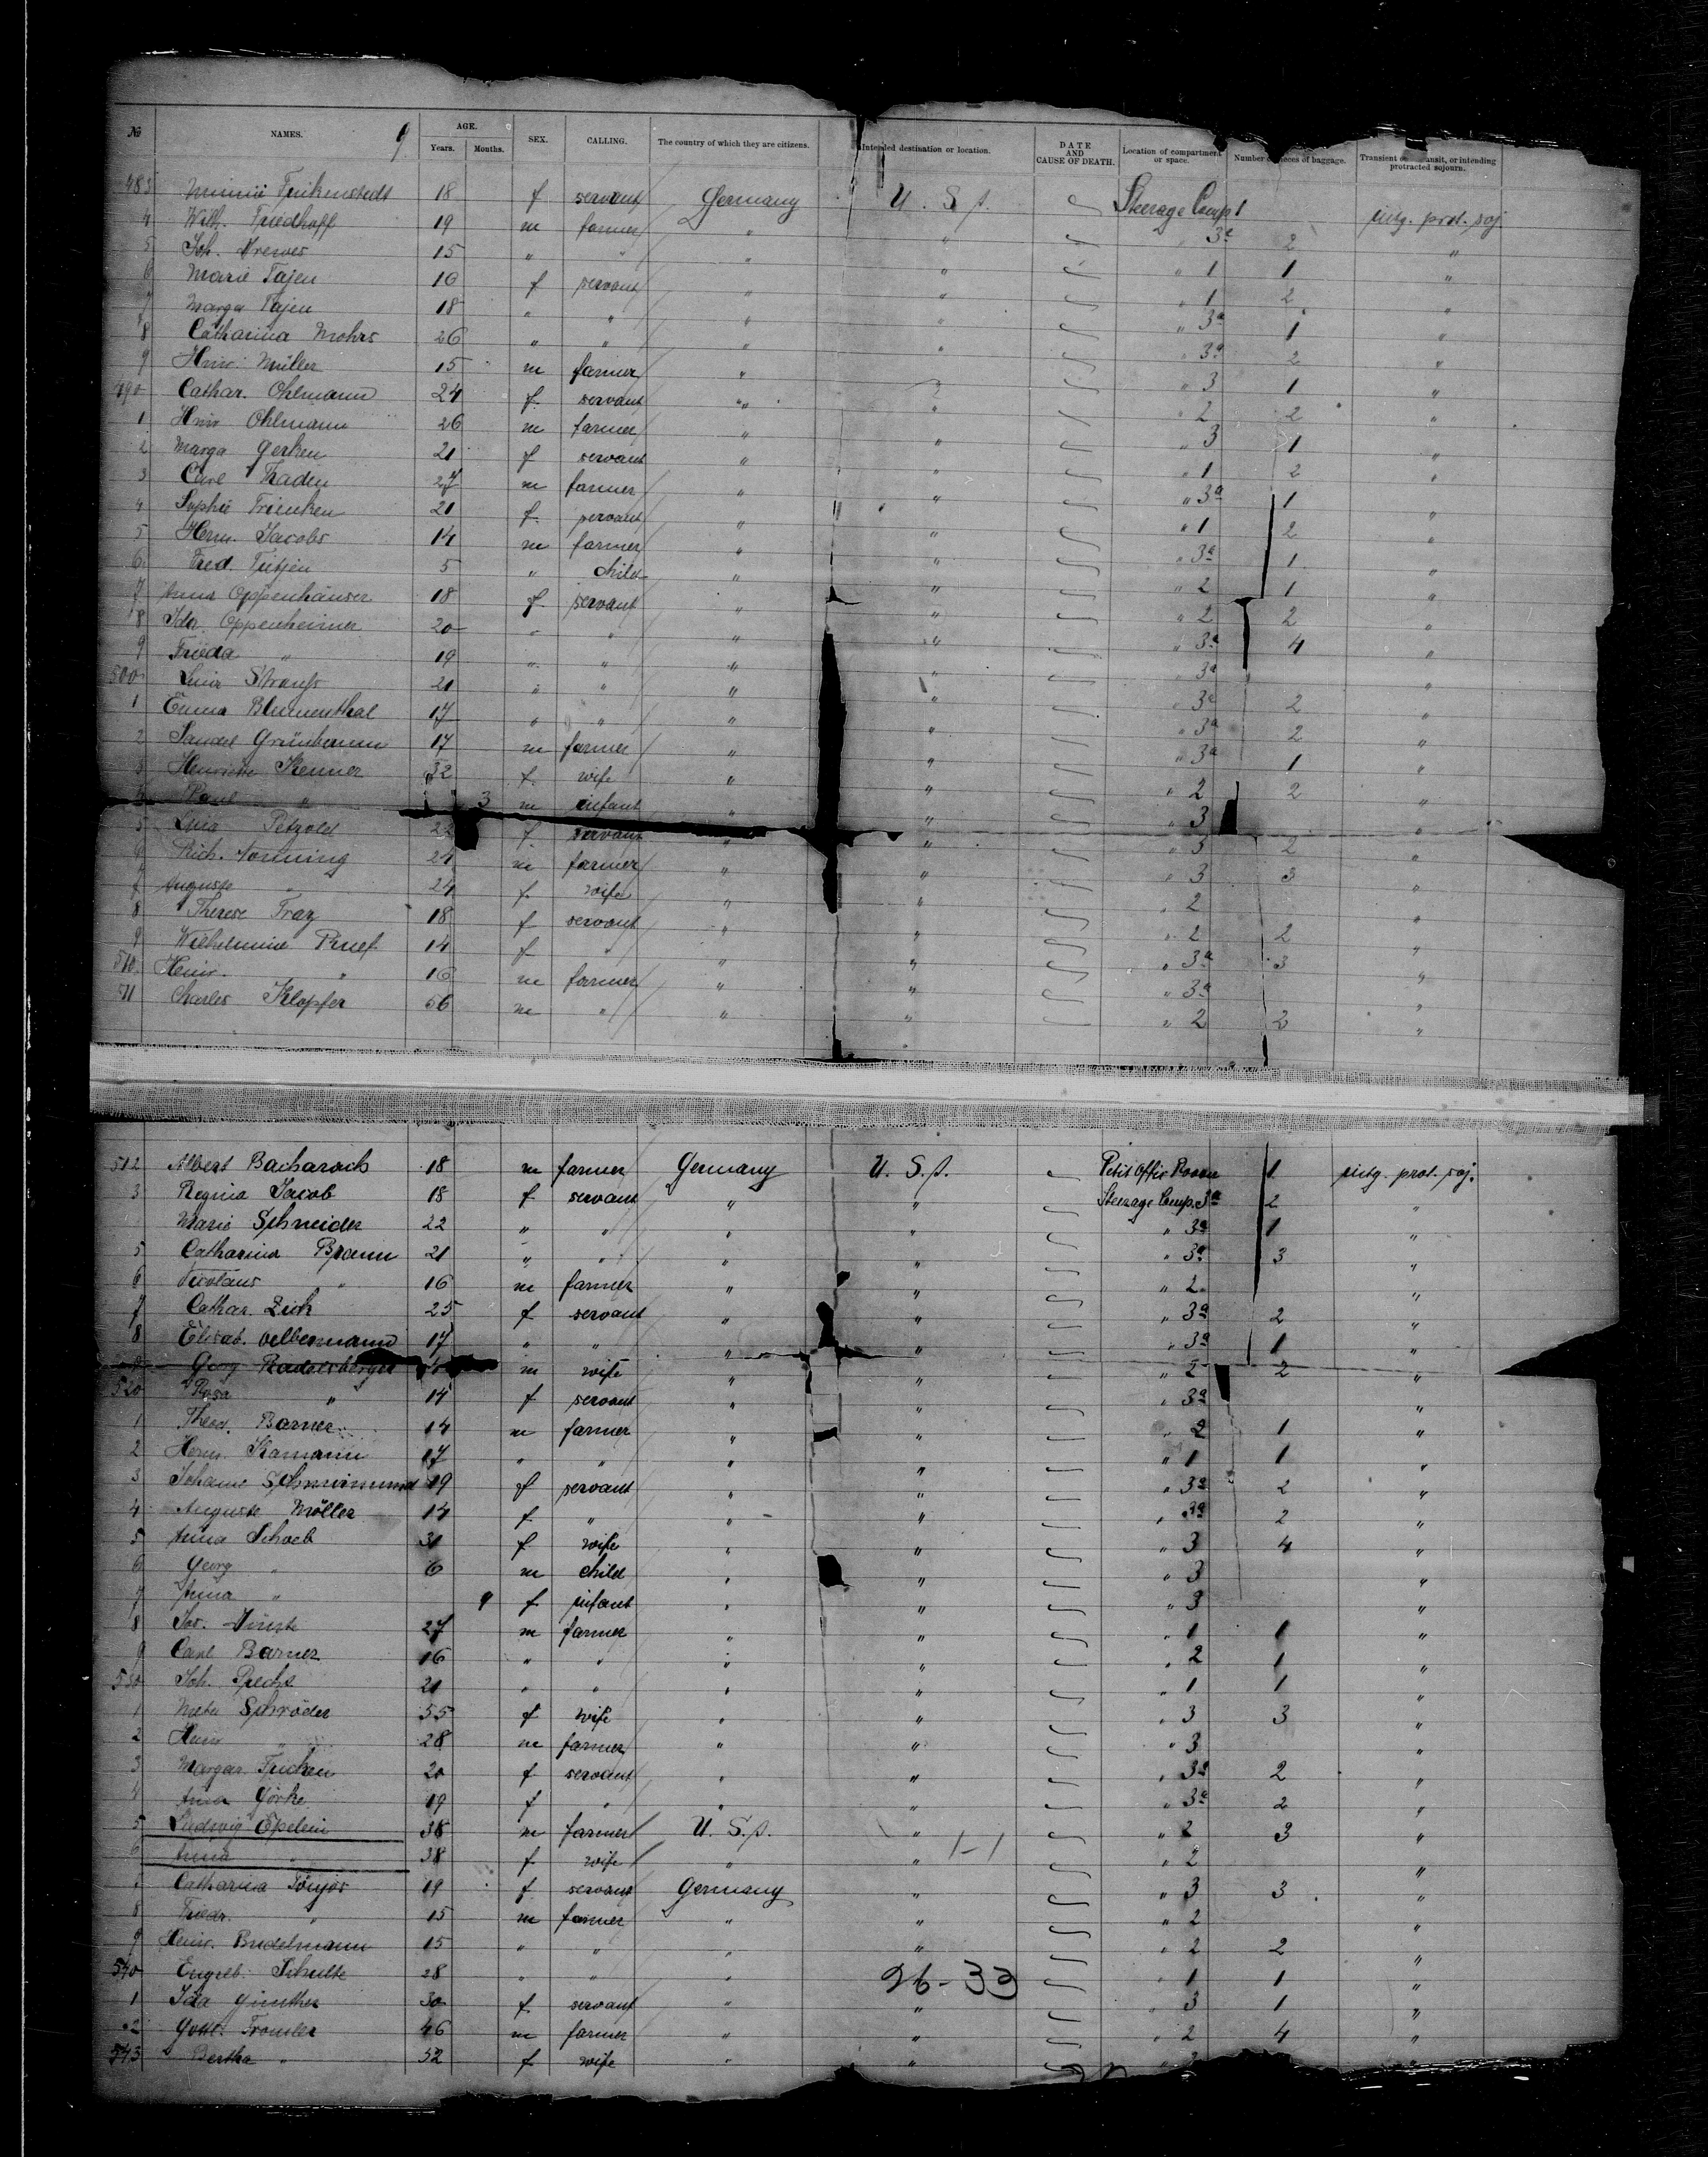 No NAMES. 9 AGE. Years. Months. SEX. CALLING. The country of which they are citizens. Intended destination or location. DATE AND CAUSE OF DEATH. Location of compartment or space. Number pieces of baggage. Transient or transit, or intending protracted sojourn.
485 18 f servant Germany U. S. A. Steerage Comp 1 intg. prot. soj.
4 Wilh. Friedhoff 19 m farmer " " " 3a 2 "
5 Joh. Drewes 15 " " " " " 1 1 "
6 Marie Tajen 16 f servant " " " 1 2 "
7 Marga Tajen 18 " " " " " 3a "
8 Catharina Mohrs 26 " " " " " 3a 1 "
9 Heinr. Müller 15 m farmer " " 3 2 "
490 Cathar. Ohlmann 24 f servant " " " 2 1 "
1 Heinr Ohlmann 26 m farmer " " " 3 2 "
2 Marga Gerken 21 f servant " " " 1 1 "
3 Carl Thaden 27 m farmer " " " 3a 2 "
4 Sophie Frienken 21 f. servant " " " 1 1 "
5 Herm. Jacobs 14 m farmer " " " 3a 2 "
6 Fred. Tietjen 5 " child " " " 2 1 "
7 Anna Oppenhäuser 18 f servant " " " 2 1 "
8 Ida Oppenheimer 20 " " " " " 3a 2 "
9 Frieda " 19 " " " " " 3a 4 "
500 Strauss 21 " " " " " 3a "
1 Emma Blumenthal 17 " " " " " 3a 2 "
2 Samuel Grünbaum 17 m farmer " " " 3a 2 "
3 Henriette Kenner 32 f. wife " " " 2 1 "
4 Paul " 3 m infant " " " 3 2 "
5 Petzold 22 f. servant " " " 3 "
6 Rich. 24 m farmer " " " 3 2 "
7 Auguste " 24 f. wife " " " 2 3 "
8 Therese 18 f servant " " " 2 "
9 Wilhelmine Ruef 14 f " " " " 3a 2 "
510 Heinr. " 16 m farmer " " " 3a 3 "
511 Charles Klopfer 56 m " " " " 2 2 "
512 Albert Bacharach 18 m farmer Germany U. S. A. Petit Offic Room 1 intg. prot. soj.
3 Regina Jacob 18 f servant " " Steerage Comp. 3a 2 "
Marie Schneider 22 " " " " " 3a 1 "
5 Catharina Braun 21 " " " " " 3a 3 "
6 Nicolaus " 16 m farmer " " " 2 "
7 Cathar. Zich 25 f servant " " " 3a 2 "
8 Elisab. Oelbermann 17 " " " " " 3a 1 "
Georg Radelsberger m wife " " " 2 2 "
520 Rosa " 14 f servant " " " 3a "
1 Theod. Barner 14 m farmer " " " 2 1 "
2 Herm. Kamann 17 " " " " " 1 1 "
3 Johanne 19 f servant " " " 3a 2 "
4 Auguste Möller 14 f " " " " 3a 2 "
5 Anna Schoeb 30 f wife " " " 3 4 "
6 Georg " 6 m child " " " 3 "
7 Anna " 9 f infant " " " 3 "
8 27 m farmer " " " 1 1 "
9 Carl Barner 16 " " " " " 2 1 "
530 Joh. 21 " " " " " 1 1 "
1 Meta Schröder 55 f wife " " " 3 3 "
2 Heinr " 28 m farmer " " " 3 "
3 Margar. Fricken 20 f servant " " " 3a 2 "
4 Anna Görke 19 f " " " " 3a 2 "
5 Ludwig Epstein 38 m farmer U. S. A. " 1-1 " 2 3 "
6 Anna " 38 f wife " " " 2 "
7 Catharina Tönjes 19 f servant Germany " " 3 3 "
8 Friedr. " 15 m farmer " " " 2 "
9 Heinr. Brudelmann 15 " " " " " 2 2 "
540 Engelb. Schulte 28 " " " 26-33 " 1 1 "
1 Ida Günther 30 f. servant " " " 3 1 "
2 Gottl. Tromler 46 m farmer " " " 2 4 "
543 Bertha " 52 f wife " " "